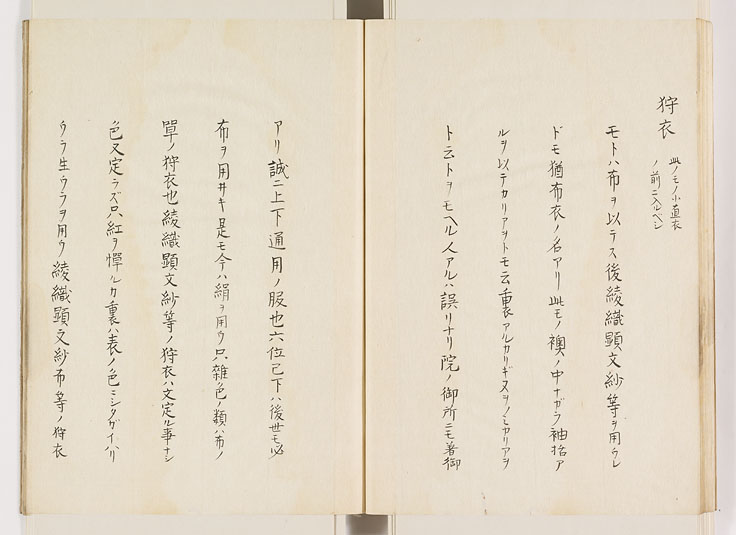 狩衣
此ノモノ小直衣
ノ前ニ入ルベシ
モトハ布ヲ以テス後綾織顕文紗等ヲ用ウレ
ドモ猶布衣ノ名アリ此モノ襖ノ中ナガラ袖括ア
ルヲ以テカリアヲトモ云裏アルカリギヌヲノミカリアヲ
ト云トヲモヘル人アルハ誤リナリ院ノ御所ニモ着御
アリ誠ニ上下通用ノ服也六位已下ハ後世モ必
布ヲ用井キ是モ今ハ絹ヲ用ウ只雑色ノ類ハ布ノ
単ノ狩衣也綾織顕文紗等ノ狩衣ハ文定ル事ナシ
色又定ラズ只紅ヲ憚ルカ裏ハ表ノ色ニシタガイハリ
ウラ生ウラヲ用ウ綾織顕文紗布等ノ狩衣